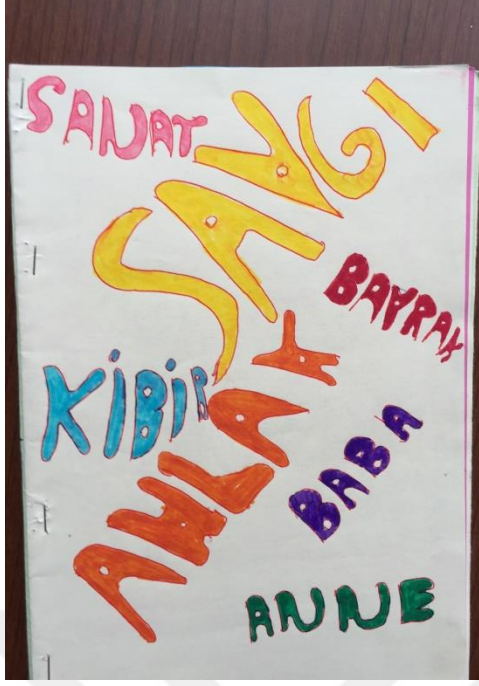 SANAT
SAYGI
BAYRAK
KİBİR
AHLAK
BABA
ANNE